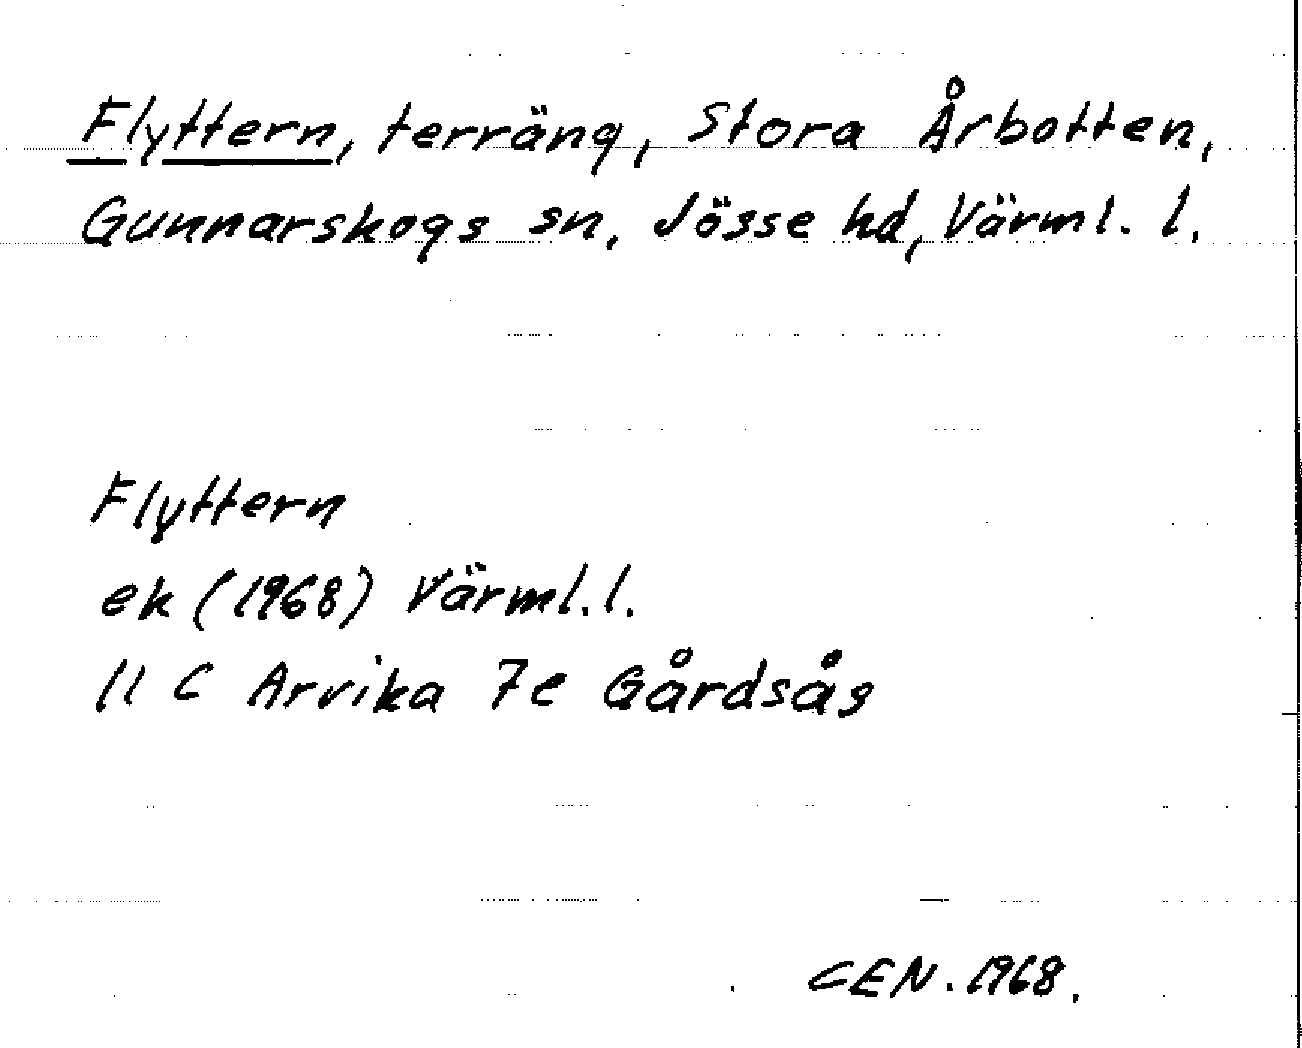 Flyttern, terräng, Stora Årbotten,
Gunnarskogs sn, Jösse hd, Värml. l.
Flyttern
ek (1968) Värml. l.
11 C Arvika 7e Gårdsås
CEN. 1968.